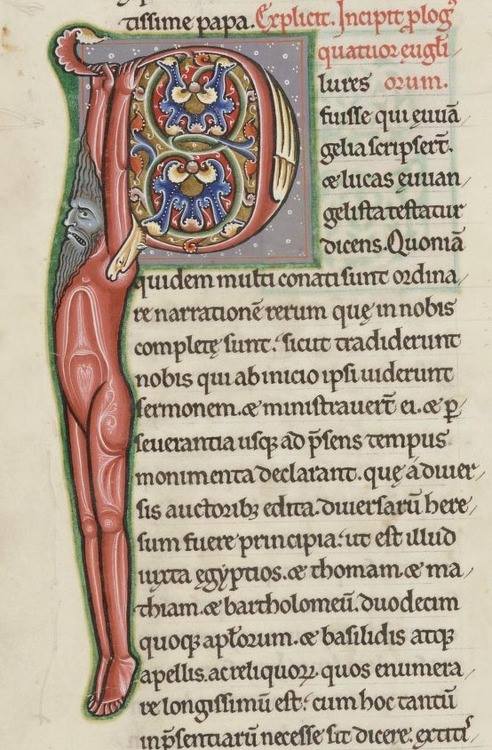 tissime papa. Explicit. Incipit plog̅
quatuor eugl̅i
lures orum.
fuisse qui euua̅
gelia scripser̅t.
& lucas euuan
gelista testatur
dicens. Quonia̅
quidem multi conati sunt ordina
re narratione̅ rerum quę in nobis
completę sunt. sicut tradiderunt
nobis qui ab inicio ipsi uiderunt
sermonem. & ministrauer̅t ei. & ꝑ
seuerantia usq; ad p̅sens tempus
monimenta declarant. quę a diuer
sis auctorib; edita. diuersaru̅ here
sum fuere principia. ut est illud
iuxta egyptios. & thomam. & ma
thiam. & bartholomeu̅. duodecim
quoq; apl̅orum. & basilidis atq;
apellis. ac reliquoꝝ. quos enumera
re longissimu̅ est. cum hoc tantu̅
in p̅sentiaru̅ necesse sit dicere. extitis̅